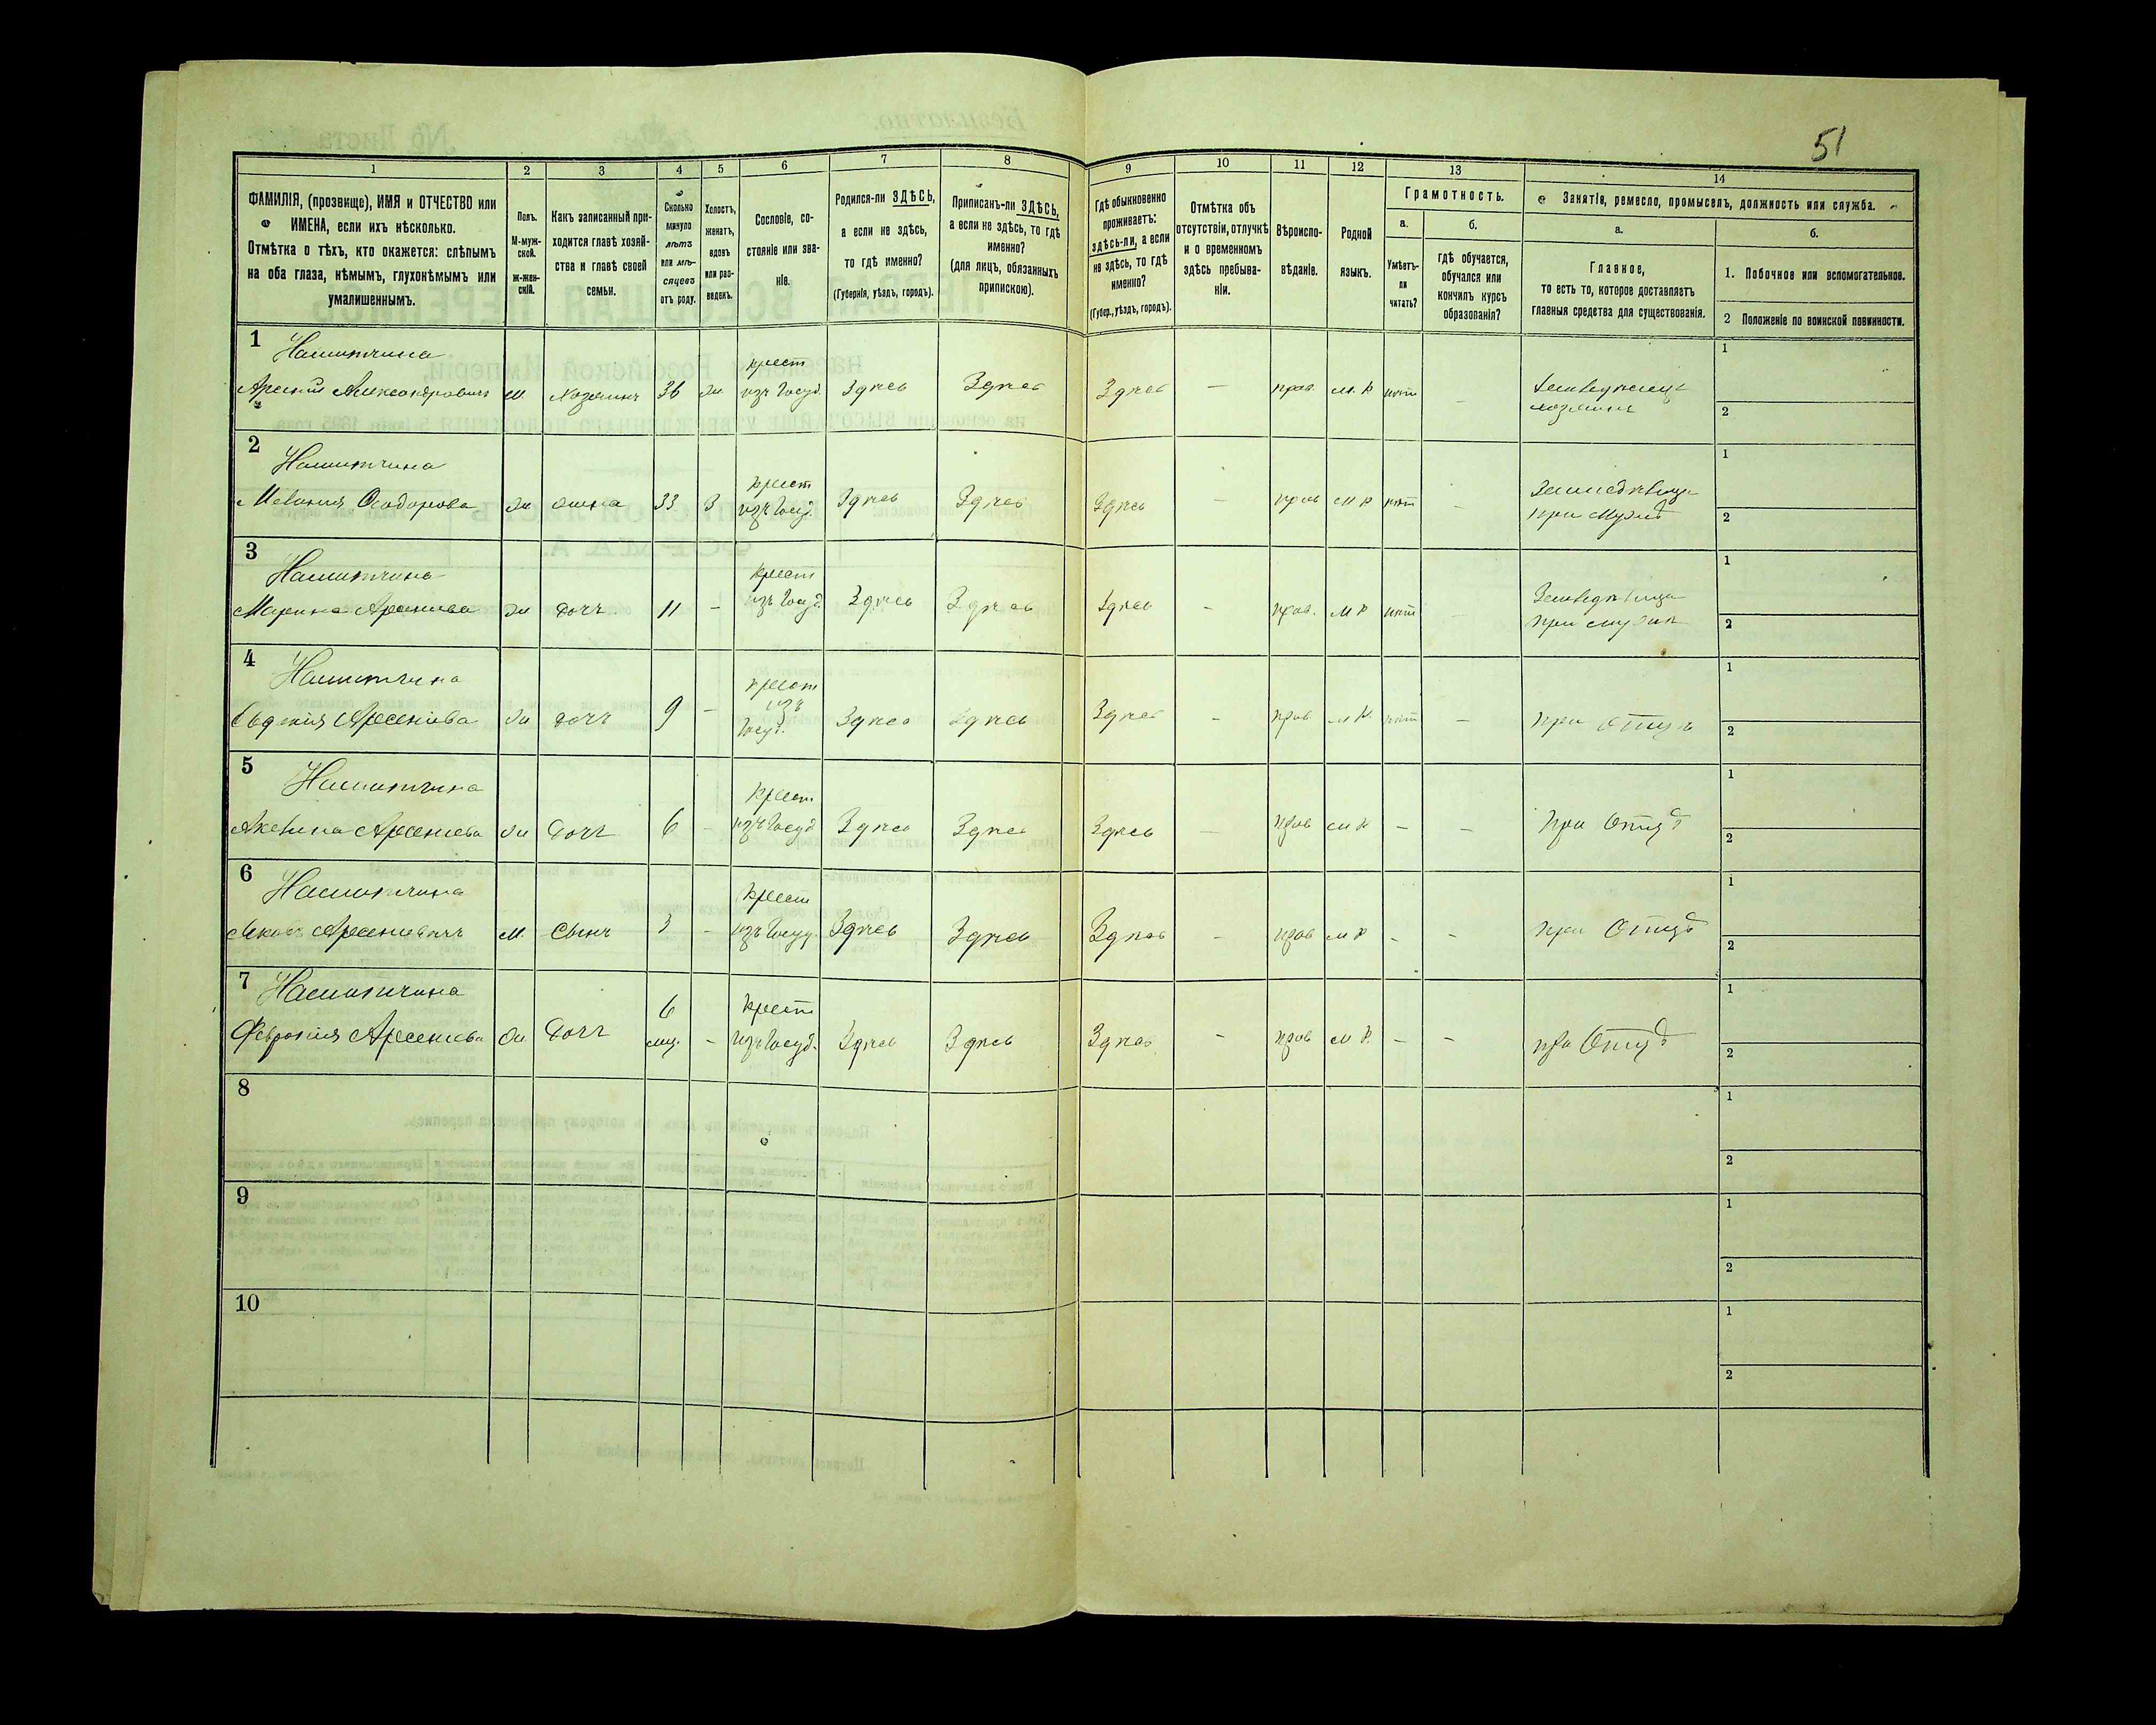 51
1
2
3
4
5
6
7
8
9
10
11
12
13
14
ФАМИЛІЯ, (прозвище), ИМЯ и ОТЧЕСТВО или
ИМЕНА, если ихъ нѣсколько.
Отмѣтка о тѣхъ, кто окажется: слѣпымъ
на оба глаза, нѣмымъ, глухонѣмымъ или
умалишеннымъ.
Полъ.
М-муж-
ской.
Ж-жен-
скій.
Какъ записанный при-
ходится главѣ хозяй-
ства и главѣ своей
семьи.
Сколько
минуло
лѣтъ
или мѣ-
сяцевъ
отъ роду.
Холостъ,
женатъ,
вдовъ
или раз-
веденъ.
Сословіе, со-
стояніе или зва-
ніе.
Родился-ли ЗДѢСЬ,
а если не здѣсь,
то гдѣ именно?
(Губернія, уѣздъ, городъ).
Приписанъ-ли ЗДѢСЬ,
а если не здѣсь, то гдѣ
именно?
(для лицъ, обязанныхъ
припискою).
Гдѣ обыкновенно
проживаетъ:
здѣсь-ли, а если
не здѣсь, то гдѣ
именно?
(Губер., уѣздъ, городъ).
Отмѣтка объ
отсутствіи, отлучкѣ
и о временномъ
здѣсь пребыва-
ніи.
Вѣроиспо-
вѣданіе.
Родной
языкъ.
Грамотность.
а.
Умѣетъ-
ли
читать?
б.
гдѣ обучается,
обучался или
кончилъ курсъ
образованія?
Занятія, ремесло, промыселъ, должность или служба.
а.
Главное,
то есть то, которое доставляетъ
главныя средства для существованія.
б.
1. Побочное или вспомогательное.
2 Положеніе по воинской повинности.
1
крест
Арсений Александровичъ м. Хозяинъ 36 изъ Госуд. Здѣсь Здѣсь Здѣсь — прав. м. р нѣт
хозяинъ
1
2
2
крест
Ѳеодорова жи жена 33 З изъ Госуд. Здѣсь Здѣсь Здѣсь — прав м р нѣт —
при мужѣ
1
2
3
крест
Марина Арсениева жи дочь 11 — изъ Госуд. Здѣсь Здѣсь Здѣсь — прав. м р нѣт —
1
2
4
крест
изъ
Госуд.
Евдокия Арсениева жи дочь 9 — Здѣсь Здѣсь Здѣсь — прав м р. нѣт — при отцѣ
1
2
5
крест
Арсениева жи дочь 6 — изъ Госуд Здѣсь Здѣсь Здѣсь — прав м р — — при отцѣ
1
2
6
крест
Яковъ Арсениевичъ м. сынъ 3 — изъ Госуд. Здѣсь Здѣсь Здѣсь — прав м р — — при отцѣ
1
2
7
6 крест
Феврония Арсениева жи дочь мц. — изъ Госуд. Здѣсь Здѣсь Здѣсь — прав м р. — — при отцѣ
1
2
8
1
2
9
1
2
10
1
2